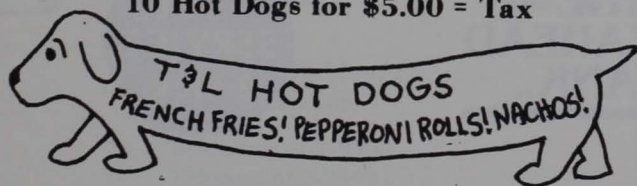 10 Hot Dogs for $5.00 = Tax
T&L HOT DOGS
FRENCH FRIES! PEPPERONI ROLLS! NACHOS!